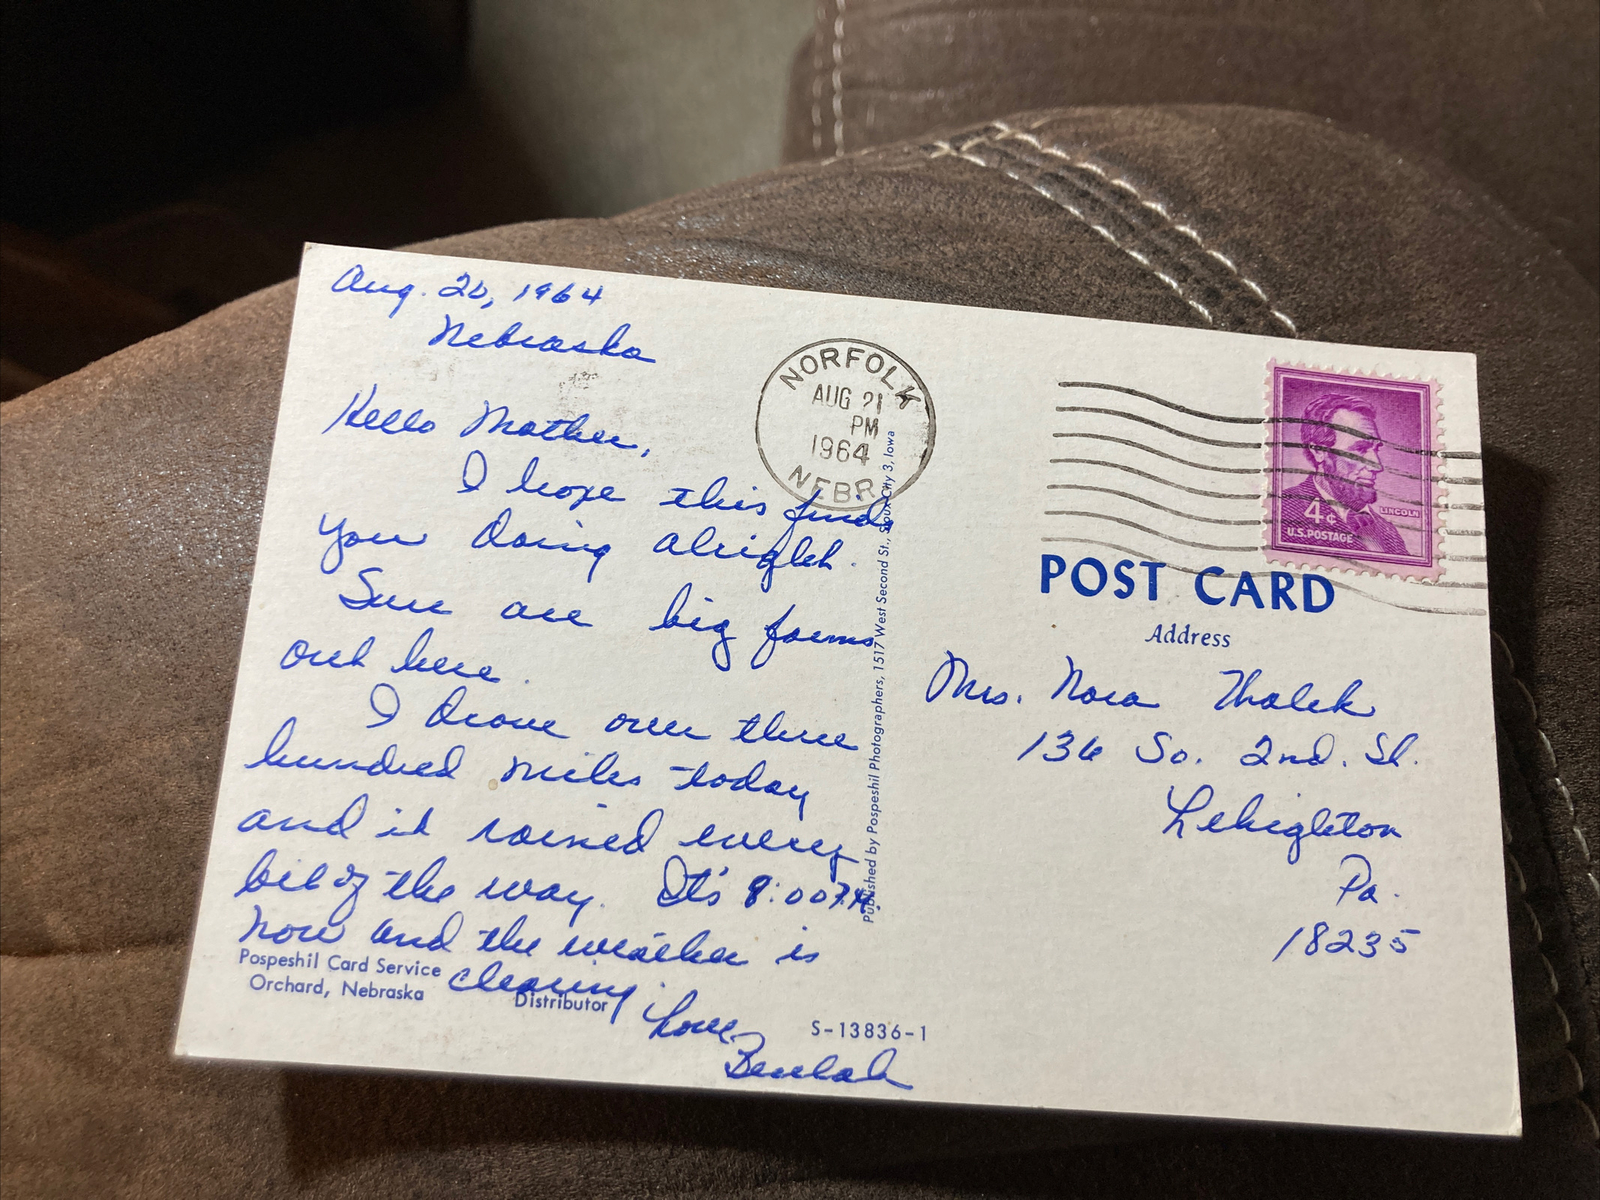 Aug. 20, 1964
Nebraska
Hello Mother,
I hope this finds
you doing alright.
Sure are big farms
out here.
I drove over three
hundred miles today
and it rained every
bit of the way. It's 8:00 P.M.
now and the weather is
clearing.
Love,
Beulah
Pospeshil Card Service
Orchard, Nebraska
Distributor
S-13836-1
Published by Pospeshil Photographers, 1517 West Second St., Sioux City 3, Iowa
NORFOLK
AUG 21
PM
1964
NEBR.
4¢
LINCOLN
U.S. POSTAGE
POST CARD
Address
Mrs. Nora
136 So. 2nd. St.
Lehighton
Pa.
18235